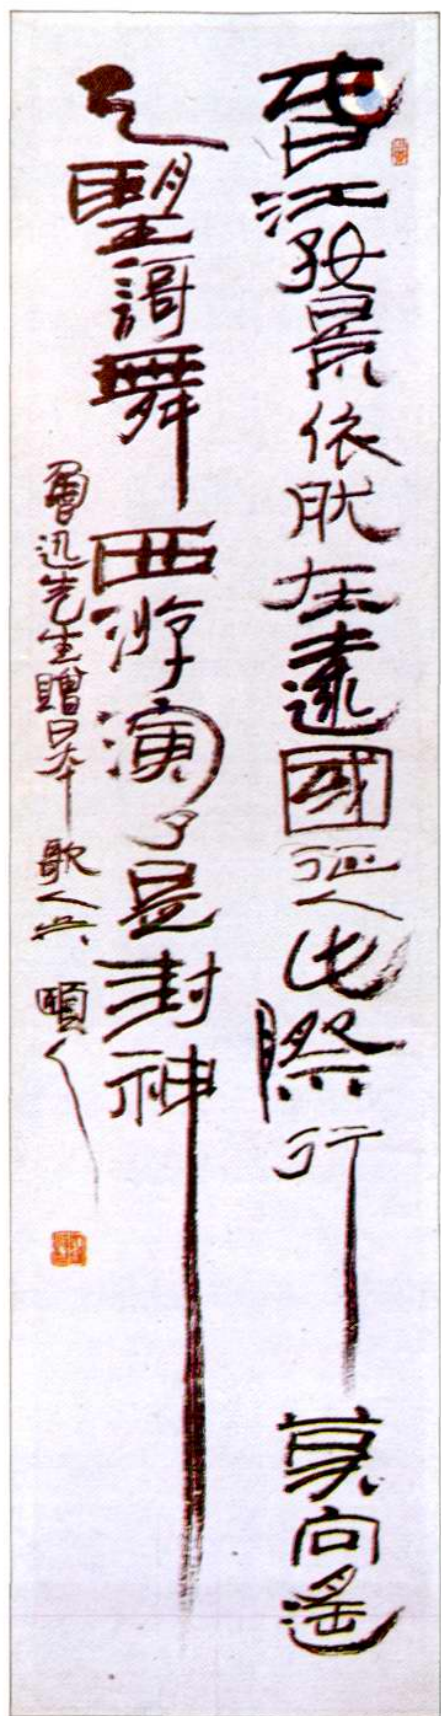 春江好景依然在遠國征人此際行莫向遙
天望謌舞西游演了是封神
魯迅先生贈日本歌人 頤人